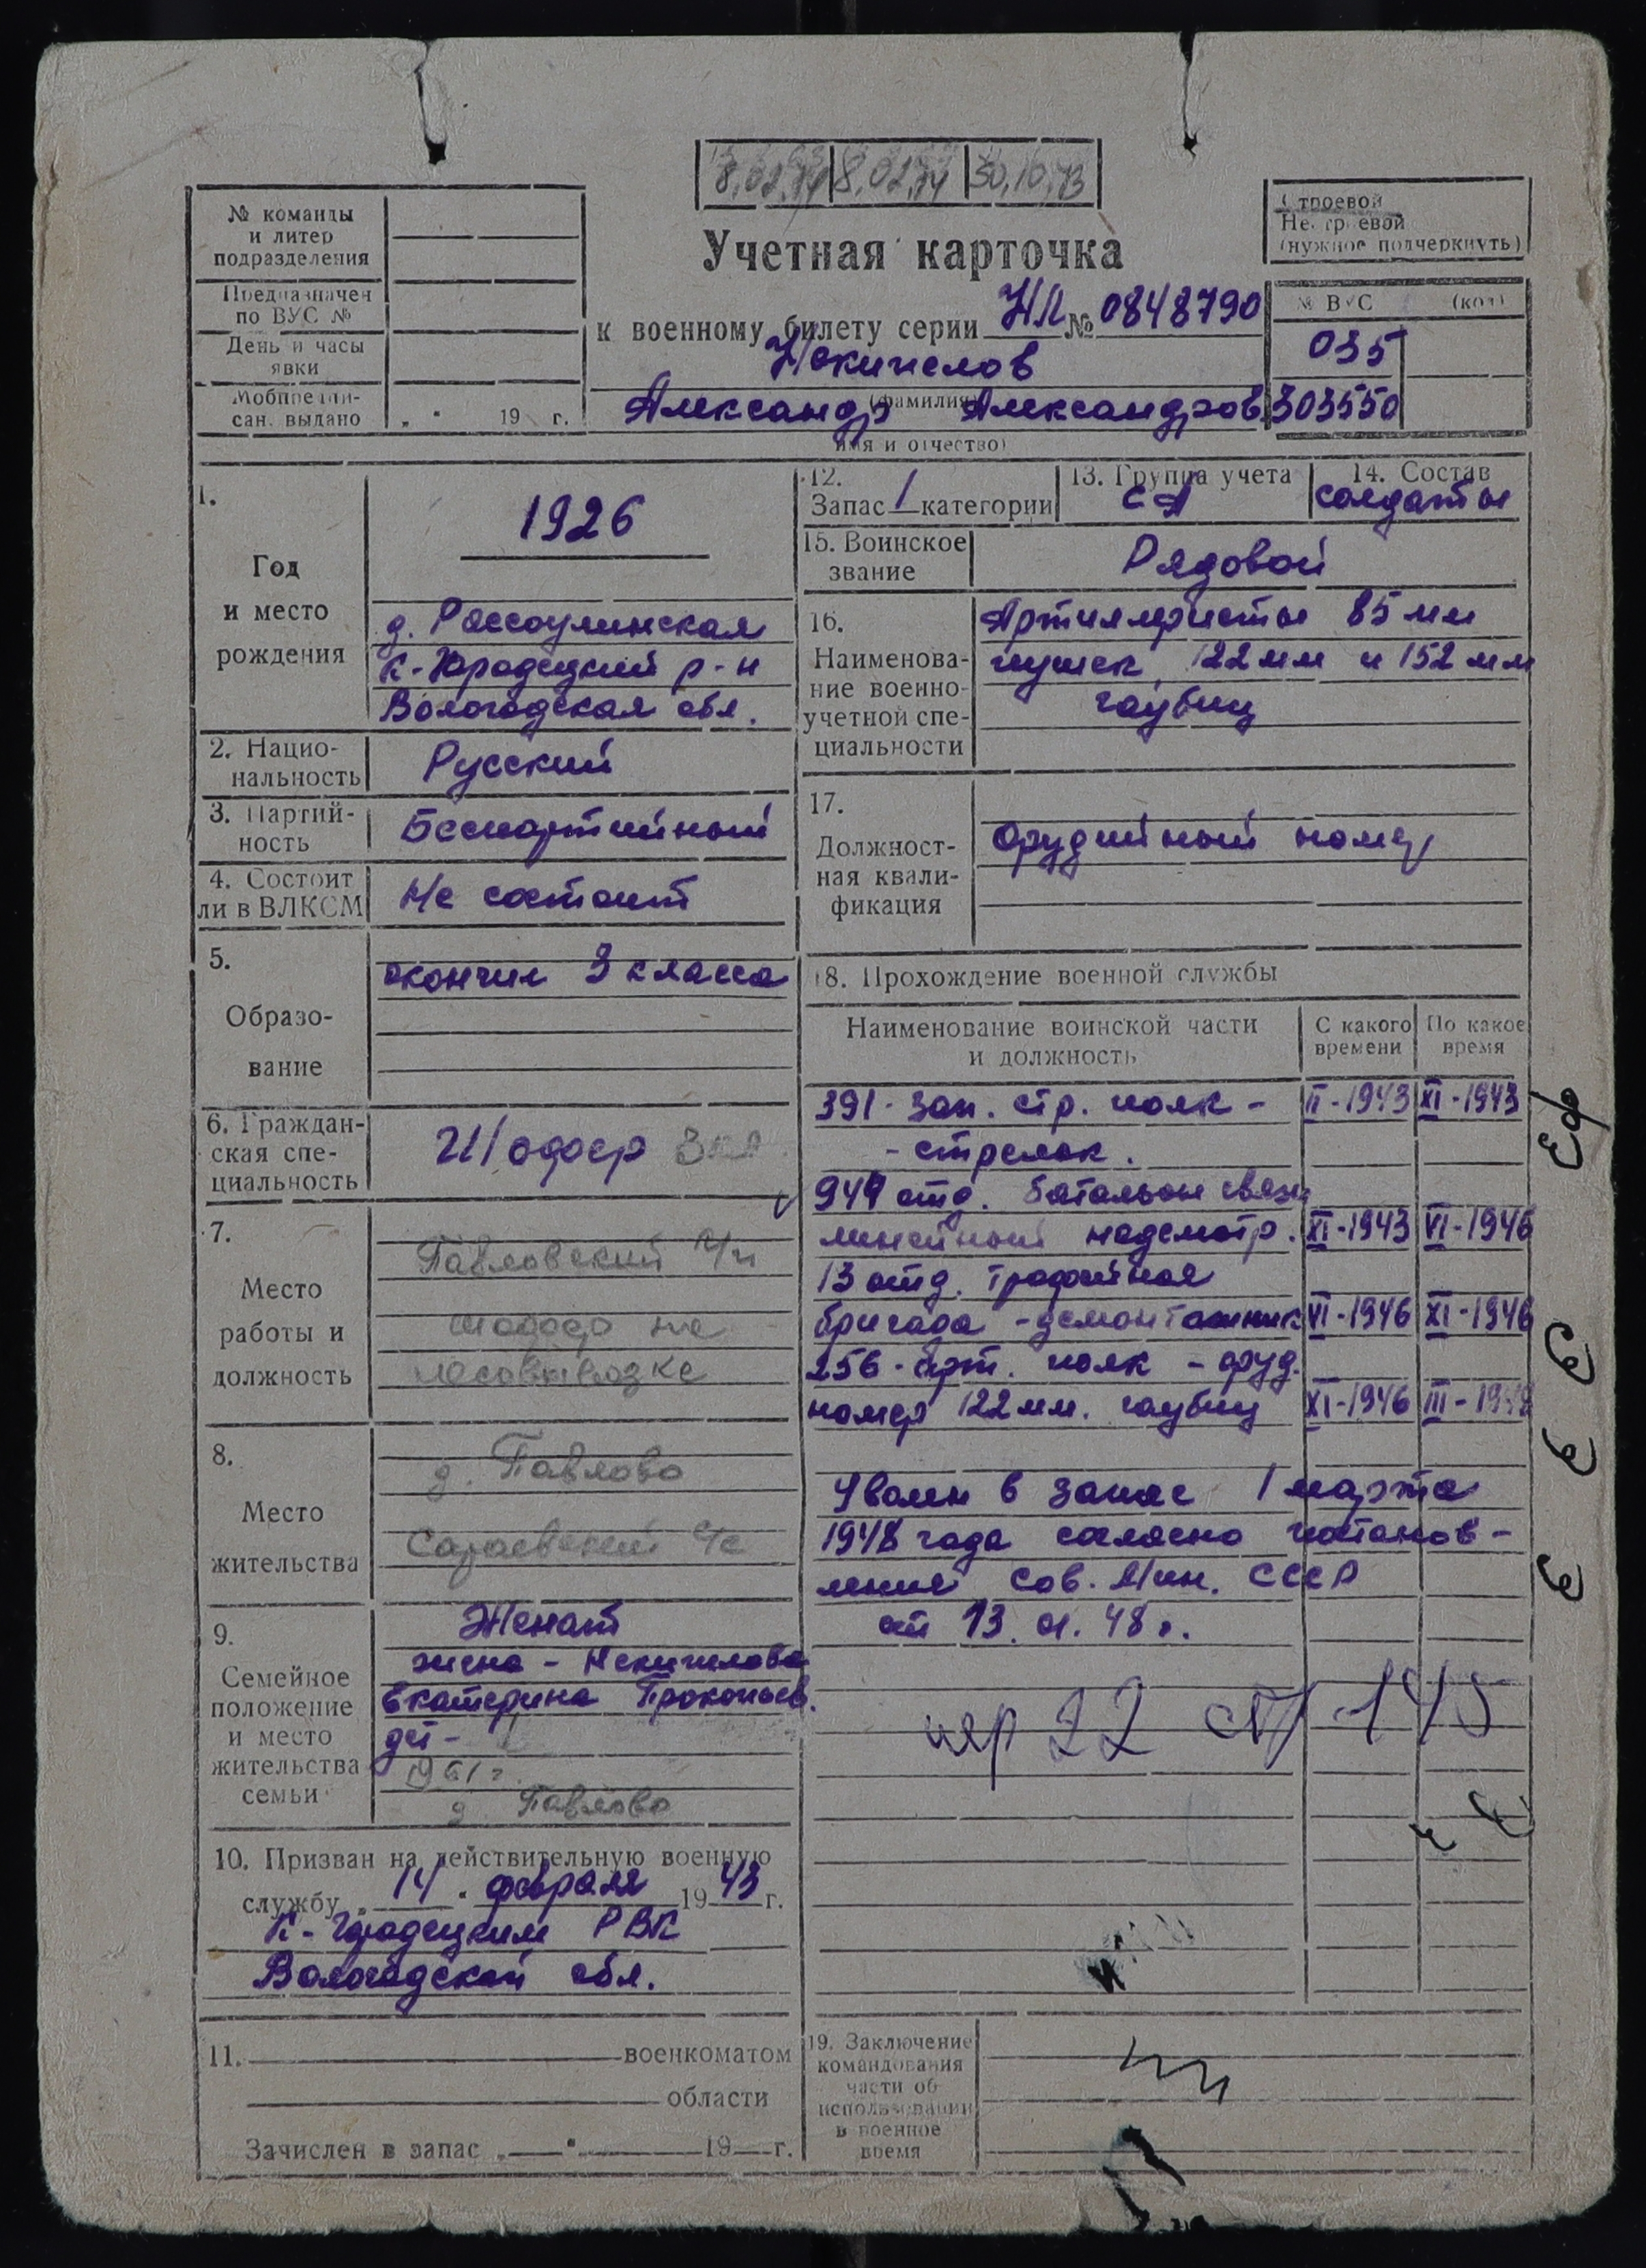 8.02.74 8.02.74 30.10.73
№ команды
и литер
подразделения
Предназначен
по ВУС №
День и часы
явки
Мобпредпи-
сан. выдано
" " 19 г.
Учетная карточка
к военному билету серии НЛ № 0848790
Некипелов
(фамилия)
Александр Александров.
имя и отчество)
Строевой
Нестроевой
(нужное подчеркнуть)
№ ВУС (код)
035
303550
1.
Год
и место
рождения
1926
д. Рассоулинская
К-Городецкий р-н
Вологодская обл.
2. Нацио-
нальность
Русский
3. Партий-
ность
Беспартийный
4. Состоит
ли в ВЛКСМ
Не состоит
5.
Образо-
вание
окончил 3 класса
6. Граждан-
ская спе-
циальность
Шофер 3 кл.
7.
Место
работы и
должность
Павловский
шофер на
лесовывозке
8.
Место
жительства
д. Павлово
Сараевский с/с
9.
Семейное
положение
и место
жительства
семьи
Женат
жена - Некипелова
Екатерина Прокопьев.
дет -
1961 г.
д. Павлово
10. Призван на действительную военную
службу "14" февраля 1943 г.
К-Городецким РВК
Вологодской обл.
11. военкоматом
области
Зачислен в запас " " 19 г.
12.
Запас 1 категории
13. Группа учета
СА
14. Состав
солдаты
15. Воинское
звание
Рядовой
16.
Наименова-
ние военно-
учетной спе-
циальности
Артиллеристы 85 мм
пушек, 122 мм и 152 мм
гаубиц
17.
Должност-
ная квали-
фикация
Орудийный номер
18. Прохождение военной службы
Наименование воинской части
и должность
С какого
времени
По какое
время
391 - зап. стр. полк - II-1943 XI-1943
- стрелок.
949 отд. батальон связи
линейный надсмотр. XI-1943 VI-1946
13 отд. трофейная
бригада - демонтажник VI-1946 XI-1946
256 - арт. полк - оруд.
номер 122 мм. гаубиц XI-1946 III-1948
Уволен в запас 1 марта
1948 года согласно постанов-
ления Сов. Мин. СССР
от 13. 01. 48 г.
19. Заключение
командования
части об
использовании
в военное
время